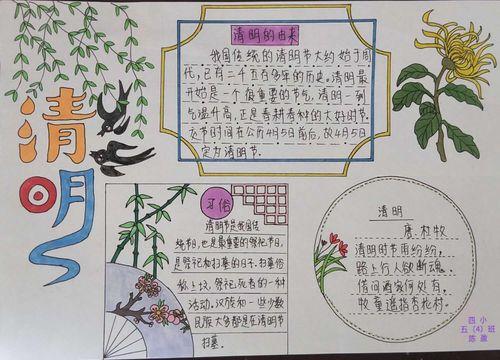 清明
清明的由来
我国传统的清明节大约始于周
代,已有二千五百多年的历史。清明最
开始是一个很重要的节气,清明一到
气温升高,正是春耕春种的大好时节。
在节时间在公历4月5日前后,故4月5日
定为清明节。
习俗
清明节是我国传
统节日,也是最重要的祭祀节日,
是祭祀和扫墓的日子。扫墓俗
称上坟,祭祀死者的一种
活动。汉族和一些少数
民族大多都是在清明节
扫墓。
清明
唐·杜牧
清明时节雨纷纷,
路上行人欲断魂。
借问酒家何处有,
牧童遥指杏花村。
四小
五(4)班
陈盈